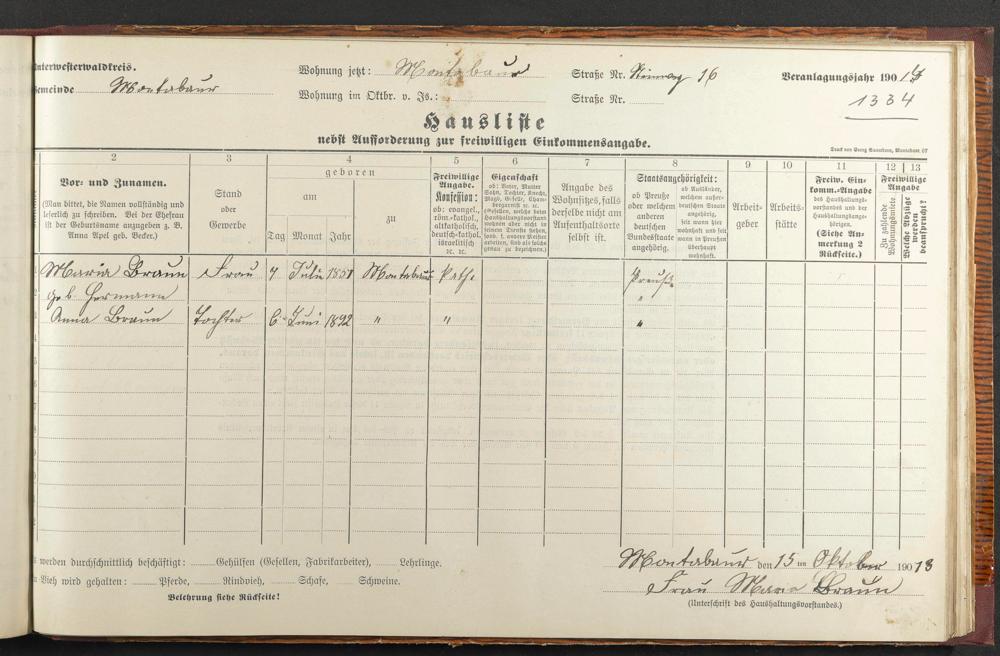 Unterwesterwaldkreis.
Gemeinde Montabaur
Wohnung jetzt: Montabaur Straße Nr. Steinweg 16
Wohnung im Oktbr. v. Js.: Straße Nr.
Veranlagungsjahr 1914
1334
Hausliste
nebst Aufforderung zur freiwilligen Einkommensangabe.
2 3 4 5 6 7 8 9 10 11 12 13
Vor- und Zunamen.
(Man bittet, die Namen vollständig und
leserlich zu schreiben. Bei der Ehefrau
ist der Geburtsname anzugeben z. B.
Anna Apel geb. Becker.)
Stand
oder
Gewerbe
geboren
am
zu
Tag Monat Jahr
Freiwillige
Angabe.
Konfession:
ob: evangel.,
röm.-kathol.,
altkatholisch,
deutsch-kathol.
israelitisch
ꝛc. ꝛc.
Eigenschaft
ob: Vater, Mutter
Sohn, Tochter, Knecht,
Angabe des
Wohnsitzes, falls
derselbe nicht am
Aufenthaltsorte
selbst ist.
Staatsangehörigkeit:
ob Preuße
oder welchem
anderen
deutschen
Bundesstaate
angehörig.
ob Ausländer,
welchem außer-
deutschen Staate
angehörig,
seit wann hier
wohnhaft und seit
wann in Preußen
überhaupt
wohnhaft.
Arbeit-
geber
Arbeits-
stätte
Freiw. Ein-
komm.-Angabe
des Haushaltungs-
vorstandes und der
Haushaltungsange-
hörigen.
(Siehe An-
merkung 2
Rückseite.)
Freiwillige
Angabe
Zu zahlende
Wohnungsmiete.
Welche Abzüge
werden
beansprucht?
Maria Braun Frau 7 Juli 1851 Montabaur kath. Preuß.
geb. Hermann "
Anna Braun Tochter 6. Juni 1892 " " "
werden durchschnittlich beschäftigt: Gehilfen (Gesellen, Fabrikarbeiter), Lehrlinge.
Vieh wird gehalten: Pferde, Rindvieh, Schafe, Schweine.
Belehrung siehe Rückseite!
Montabaur den 15 ten Oktober 1913
Frau Maria Braun
(Unterschrift des Haushaltungsvorstandes.)